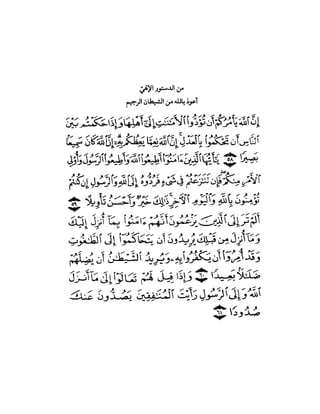 من الدستور الإلهيّ
أعوذ بالله من الشيطان الرجيم
إِنَّ ٱللَّهَ يَأْمُرُكُمْ أَن تُؤَدُّوا۟ ٱلْأَمَٰنَٰتِ إِلَىٰٓ أَهْلِهَا وَإِذَا حَكَمْتُم بَيْنَ
ٱلنَّاسِ أَن تَحْكُمُوا۟ بِٱلْعَدْلِ إِنَّ ٱللَّهَ نِعِمَّا يَعِظُكُم بِهِۦٓ إِنَّ ٱللَّهَ كَانَ سَمِيعًۢا
بَصِيرًا ٥٨ يَٰٓأَيُّهَا ٱلَّذِينَ ءَامَنُوٓا۟ أَطِيعُوا۟ ٱللَّهَ وَأَطِيعُوا۟ ٱلرَّسُولَ وَأُو۟لِى
ٱلْأَمْرِ مِنكُمْ فَإِن تَنَٰزَعْتُمْ فِى شَىْءٍ فَرُدُّوهُ إِلَى ٱللَّهِ وَٱلرَّسُولِ إِن كُنتُمْ
تُؤْمِنُونَ بِٱللَّهِ وَٱلْيَوْمِ ٱلْءَاخِرِ ذَٰلِكَ خَيْرٌ وَأَحْسَنُ تَأْوِيلًا ٥٩
أَلَمْ تَرَ إِلَى ٱلَّذِينَ يَزْعُمُونَ أَنَّهُمْ ءَامَنُوا۟ بِمَآ أُنزِلَ إِلَيْكَ
وَمَآ أُنزِلَ مِن قَبْلِكَ يُرِيدُونَ أَن يَتَحَاكَمُوٓا۟ إِلَى ٱلطَّٰغُوتِ
وَقَدْ أُمِرُوٓا۟ أَن يَكْفُرُوا۟ بِهِۦ وَيُرِيدُ ٱلشَّيْطَٰنُ أَن يُضِلَّهُمْ
ضَلَٰلًۢا بَعِيدًا ٦٠ وَإِذَا قِيلَ لَهُمْ تَعَالَوْا۟ إِلَىٰ مَآ أَنزَلَ
ٱللَّهُ وَإِلَى ٱلرَّسُولِ رَأَيْتَ ٱلْمُنَٰفِقِينَ يَصُدُّونَ عَنكَ
صُدُودًا ٦١